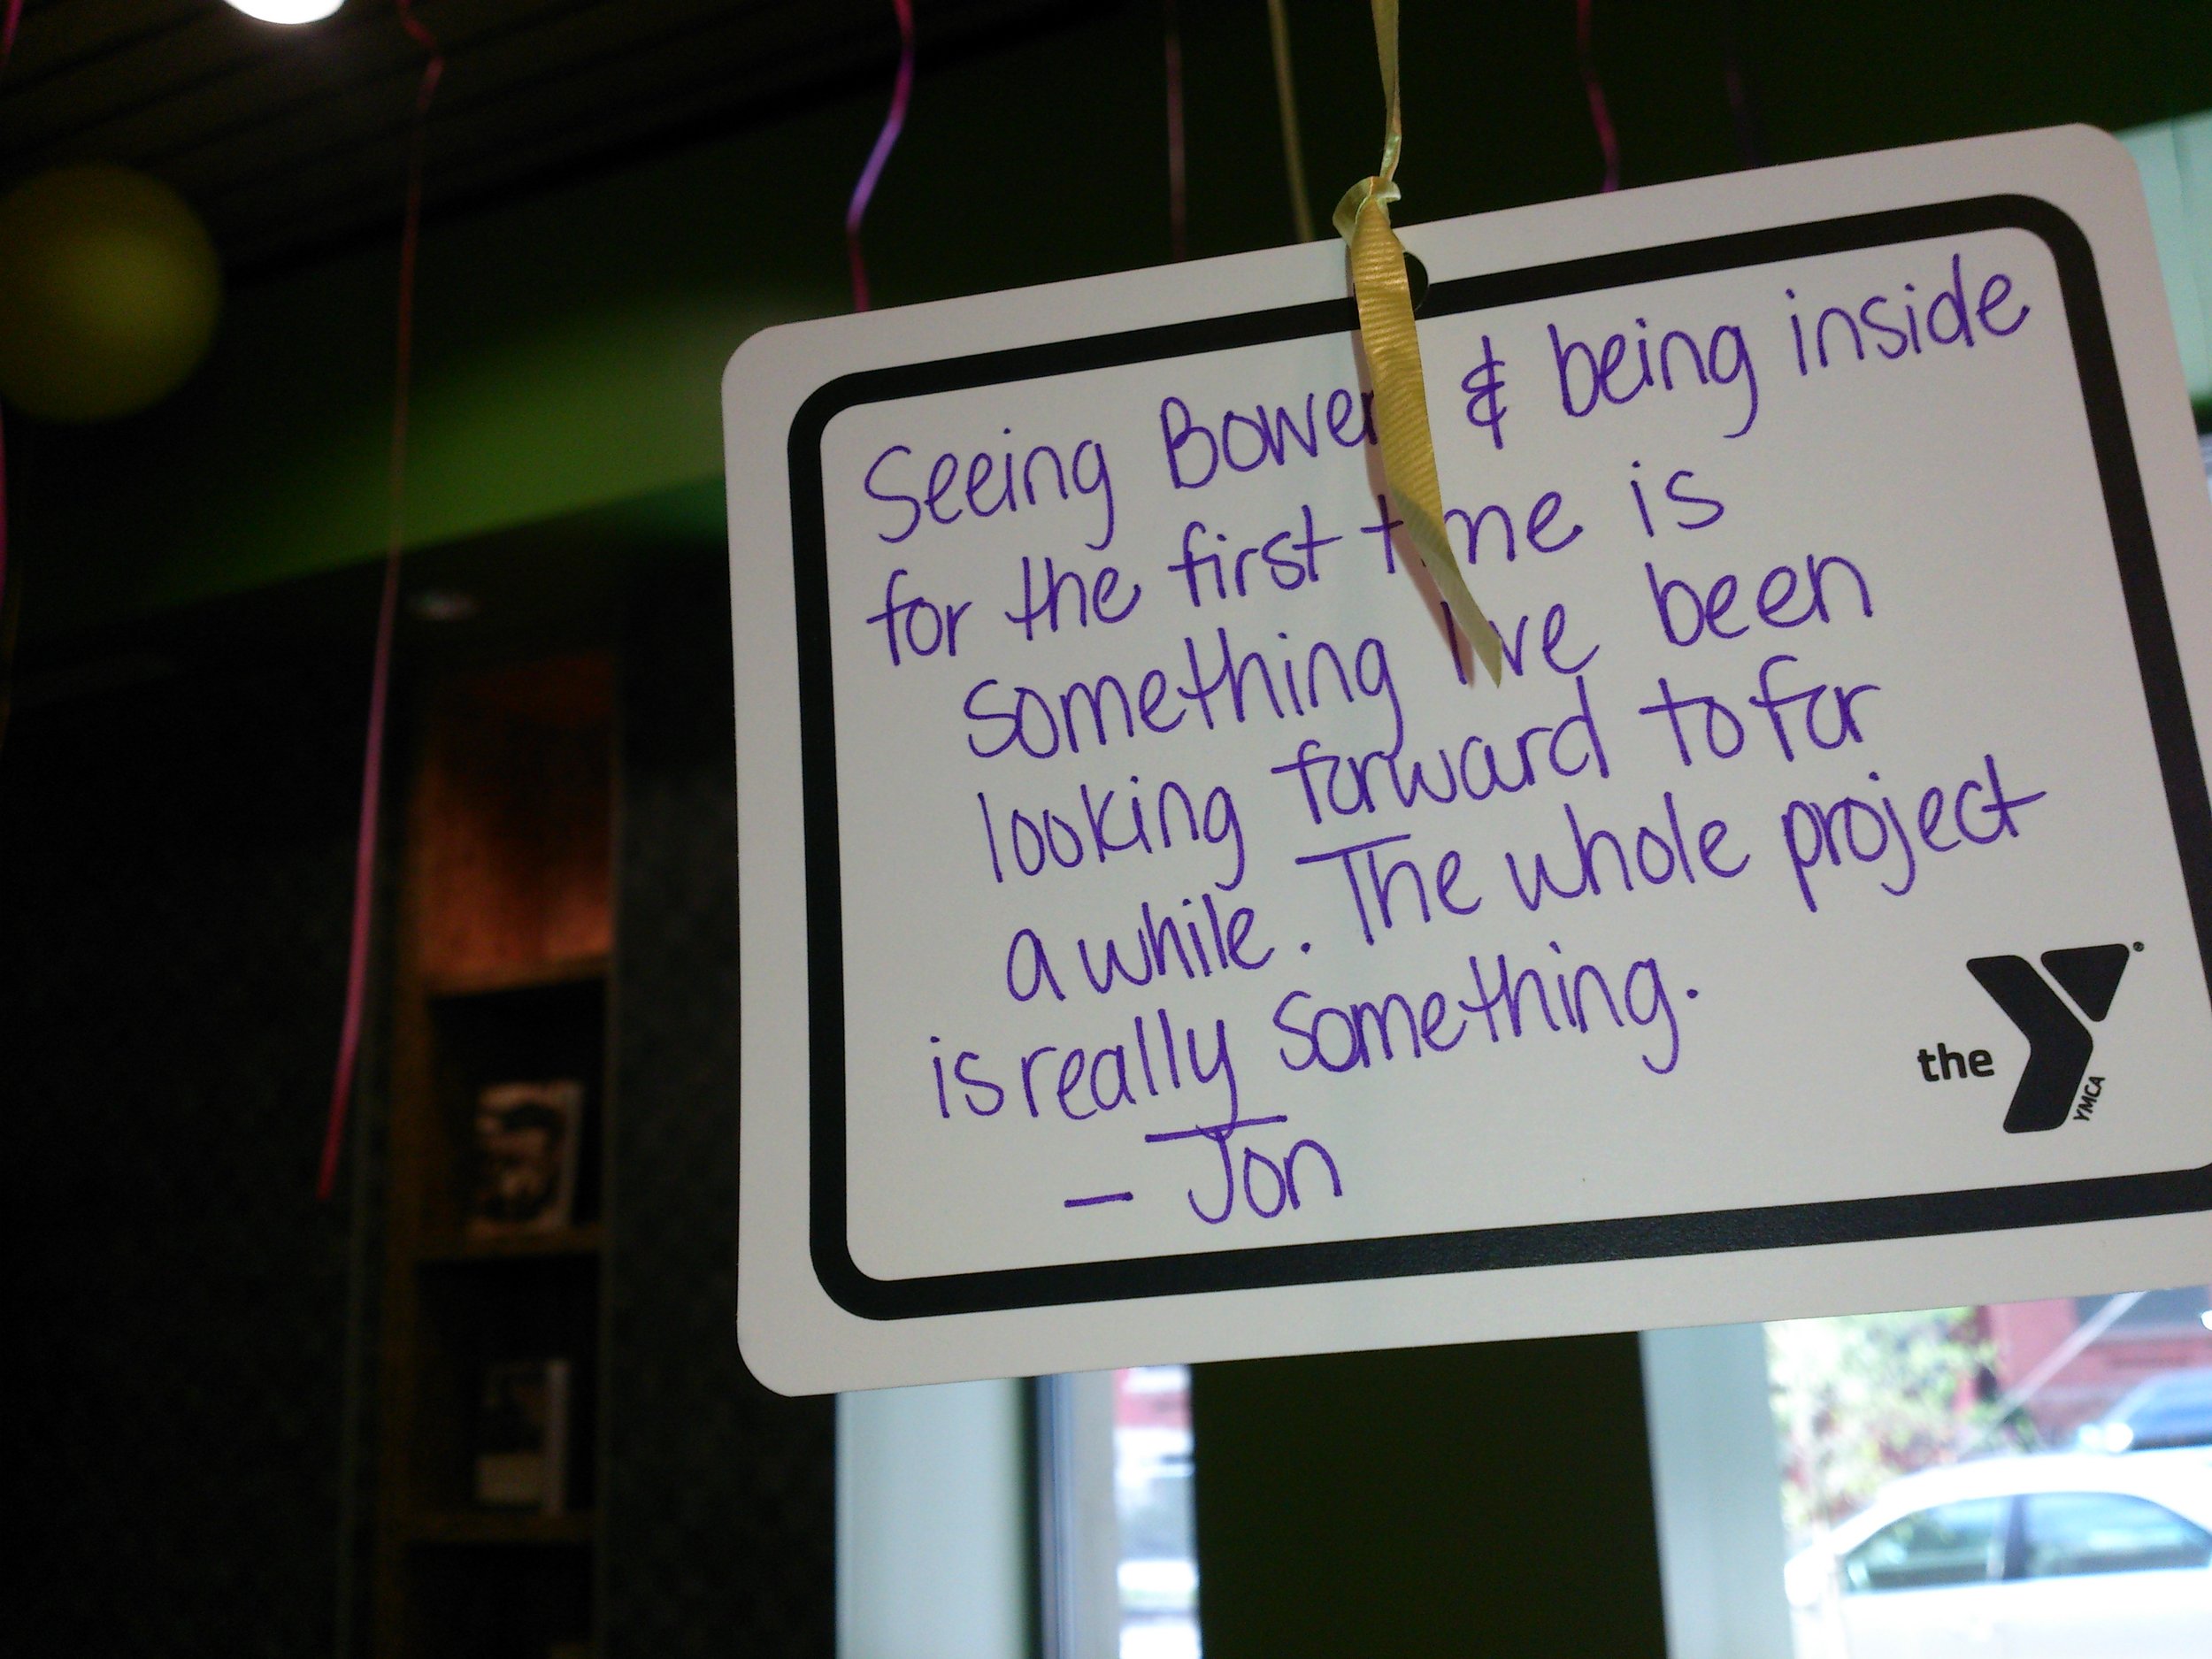 Seeing Bower & being inside
for the first time is
something I've been
looking forward to for
a while. The whole project
is really something.
- Jon
the Y
YMCA